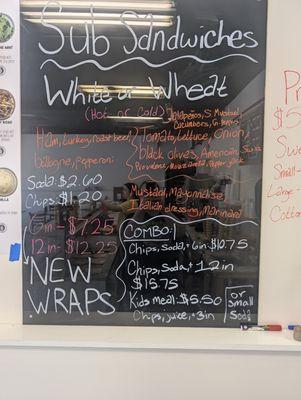 Sub Sandwiches
White or Wheat
(Hot or Cold)
Jalapeños, S. Mustard,
Cucumbers,
Ham, turkey, roast beef
bologna, Pepperoni
Tomato, Lettuce, Onion,
Black Olives, American, Swiss
Provolone, Mozzarella, Pepper jack
Mustard, Mayonnaise
Italian dressing, Marinara
Soda: $2.60
Chips: $1.20
6in - $7.25
12in - $12.25
NEW
WRAPS
COMBO:
Chips, Soda, + 6in: $10.75
Chips, Soda, + 12in
$15.75
Kids meal: $5.50
Chips, juice, + 3in
or
Small
Soda
Pr
$5
Sw
Small
Large
Cotto